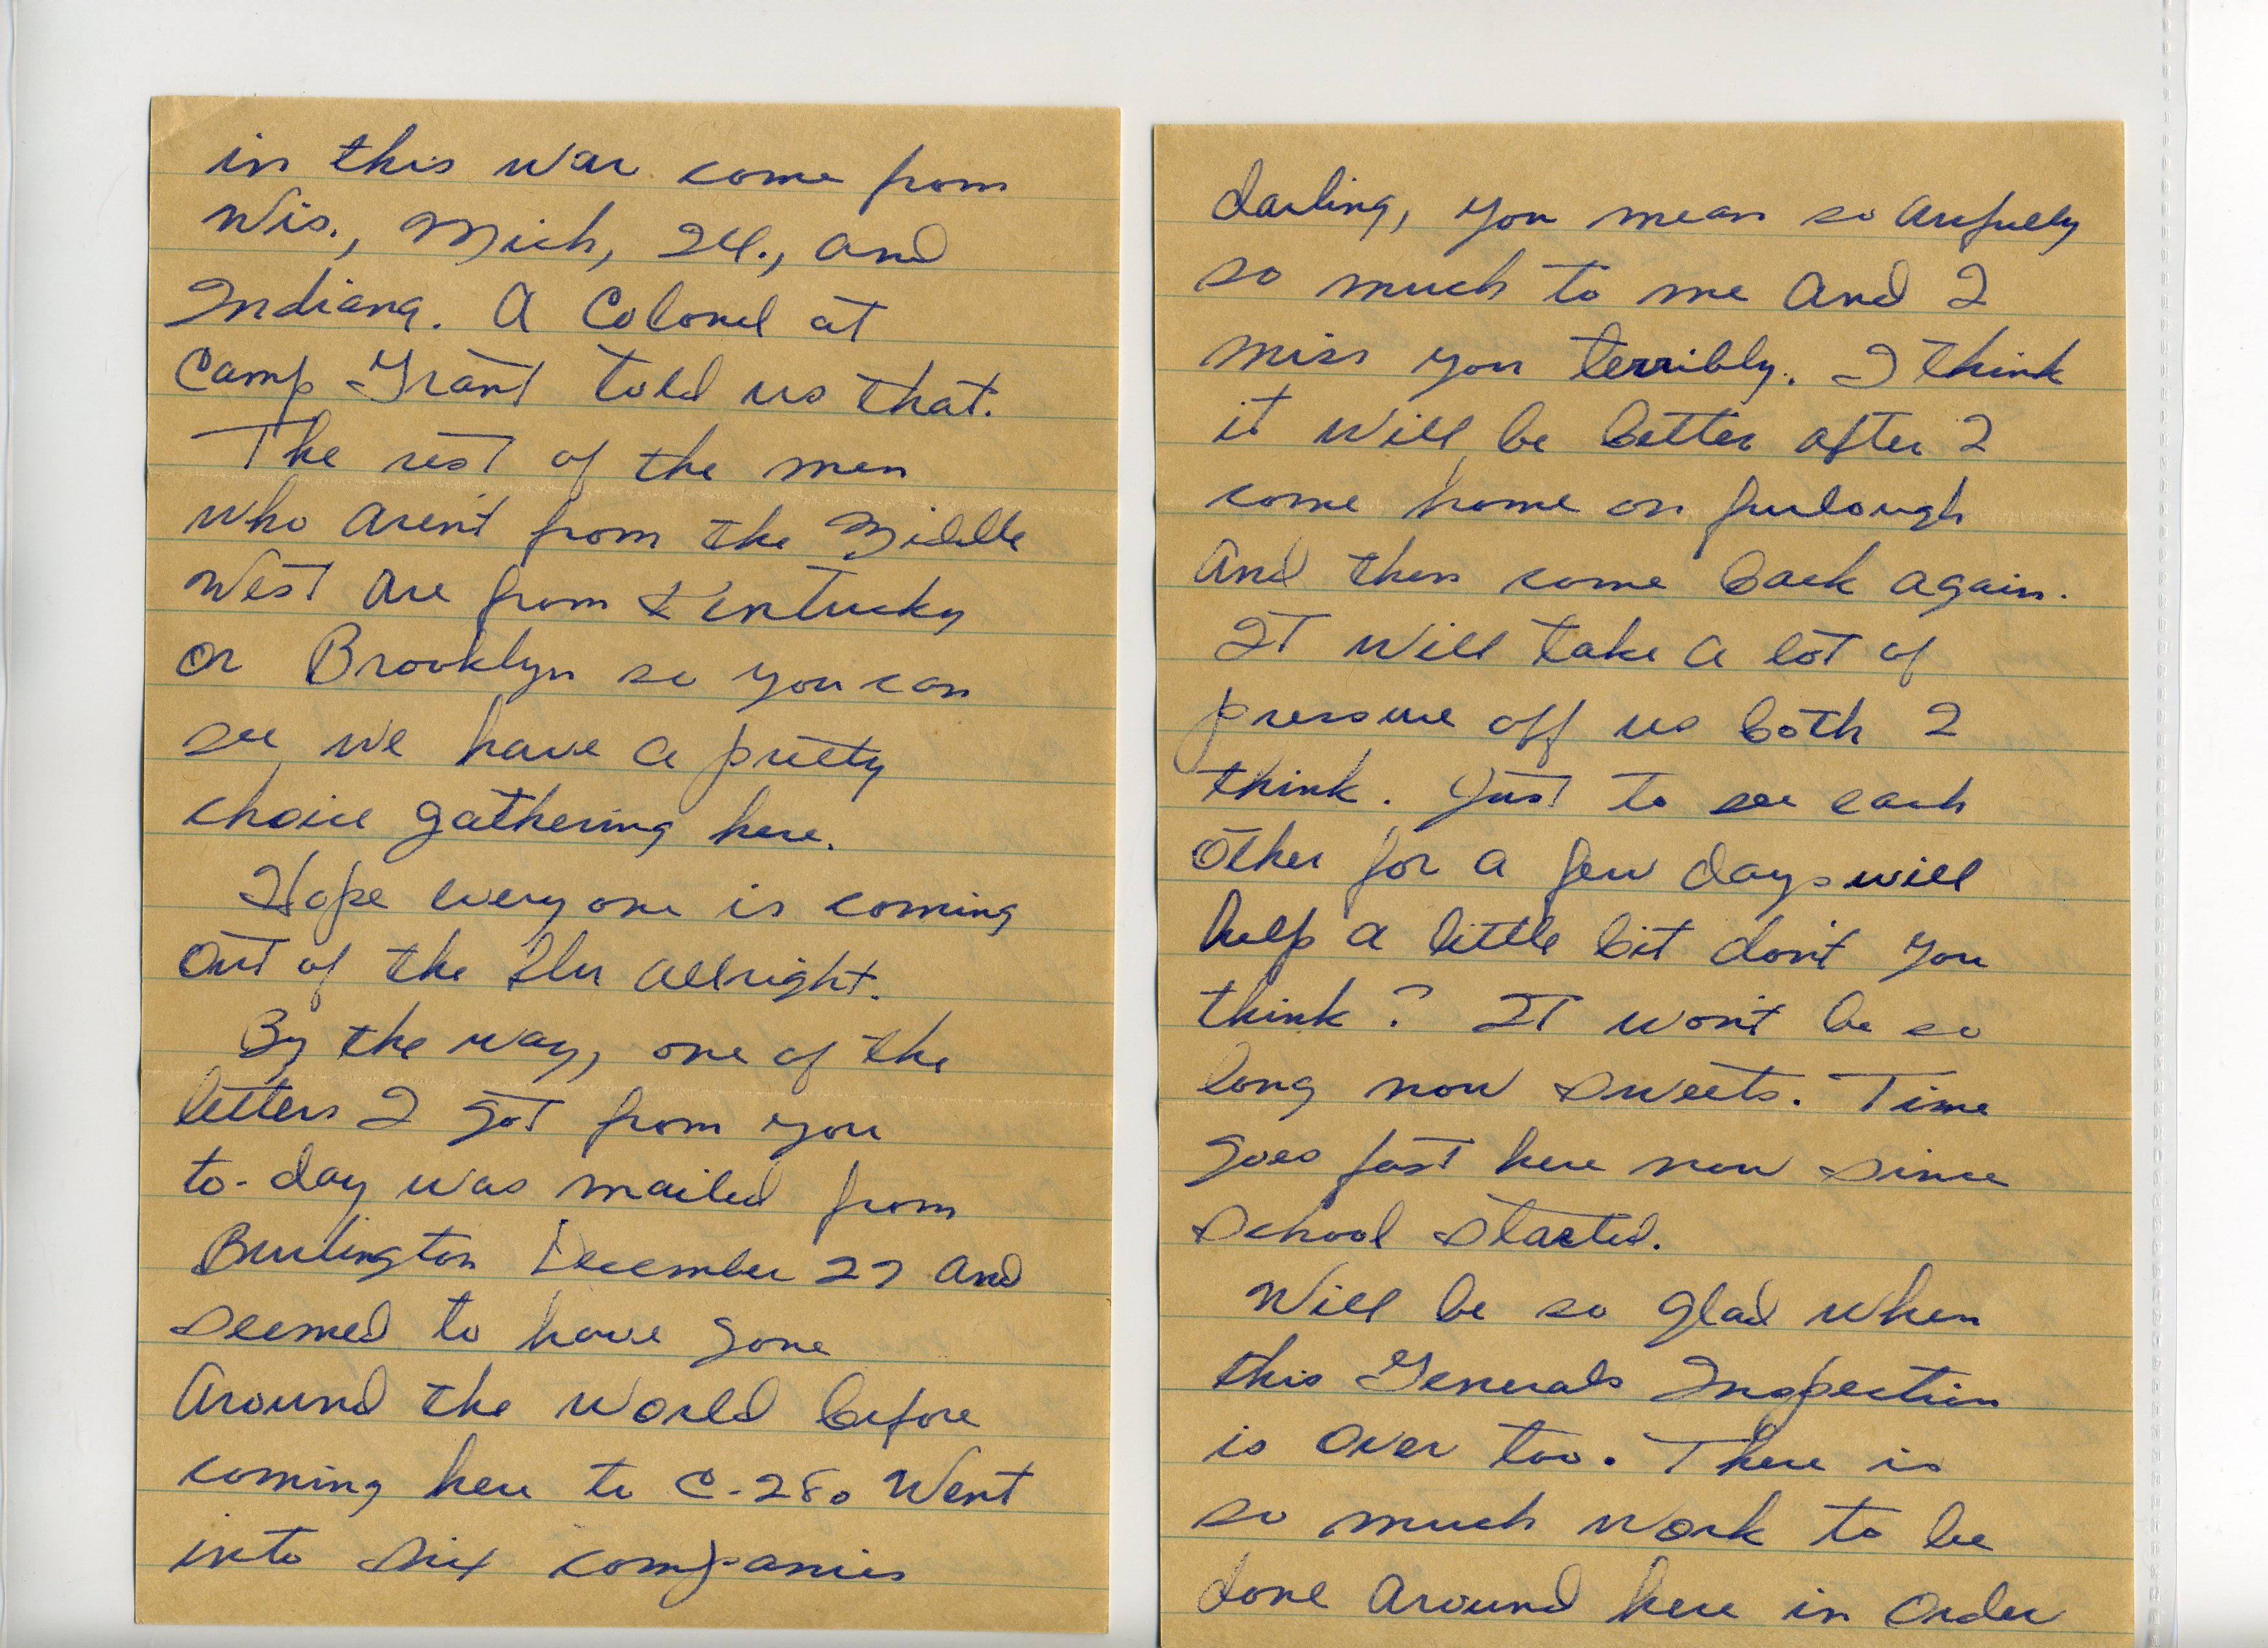 in this war come from
Wis., Mich, Ill., and
Indiana. A Colonel at
Camp Grant told us that.
The rest of the men
who aren't from the Middle
West are from Kentucky
or Brooklyn so you can
see we have a pretty
choice gathering here.
Hope everyone is coming
out of the flu allright.
By the way, one of the
letters I got from you
to-day was mailed from
Burlington December 27 and
seemed to have gone
around the world before
coming here to C-280 Went
into six companies
darling, you mean so awfully
so much to me and I
miss you terribly. I think
it will be better after I
come home on furlough
and then come back again.
It will take a lot of
pressure off us both I
think. Just to see each
other for a few days will
help a little bit don't you
think? It won't be so
long now sweets. Time
goes fast here now since
school started.
Will be so glad when
this Generals Inspection
is over too. There is
so much work to be
done around here in order